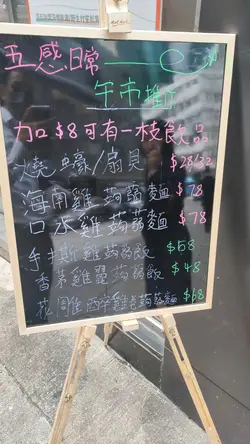 五感日常
午市推广
加$8可有一枝飲品
燒蠔/扇貝 $28/32
海南雞蒟蒻麵 $78
口水雞蒟蒻麵 $78
手扌斯雞蒟蒻飯 $58
香茅雞翼蒟蒻飯 $48
花雕醉雞蒟蒻麵 $68